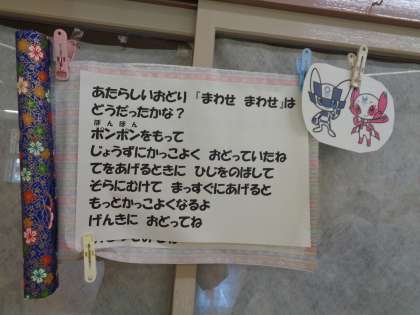 あたらしいおどり 「まわせ まわせ」は
どうだったかな？
ぽんぽん
ポンポンをもって
じょうずにかっこよく おどっていたね
てをあげるときに ひじをのばして
そらにむけて まっすぐにあげると
もっとかっこよくなるよ
げんきに おどってね